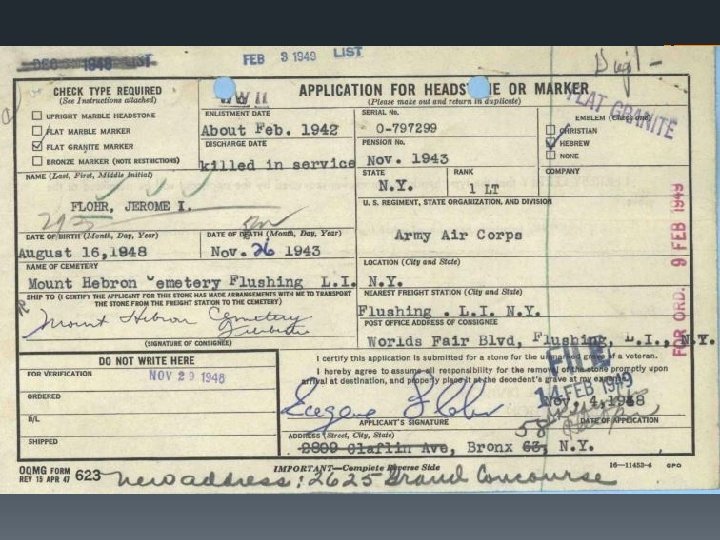 DEC 3 1948 LIST
FEB 9 1949 LIST
CHECK TYPE REQUIRED
(See Instructions attached)
UPRIGHT MARBLE HEADSTONE
FLAT MARBLE MARKER
FLAT GRANITE MARKER
BRONZE MARKER (NOT RESTRICTIONS)
WW II
APPLICATION FOR HEADSTONE OR MARKER
(Please make out and return in duplicate)
FLAT GRANITE
ENLISTMENT DATE
About Feb. 1942
SERIAL No.
O-797299
EMBLEM (Check one)
CHRISTIAN
HEBREW
NONE
DISCHARGE DATE
killed in service
PENSION No.
Nov. 1943
NAME (Last, First, Middle Initial)
FLOHR, JEROME I.
STATE
N.Y.
RANK
1 LT
COMPANY
U. S. REGIMENT, STATE ORGANIZATION, AND DIVISION
Army Air Corps
DATE OF BIRTH (Month, Day, Year)
August 16,1948
DATE OF DEATH (Month, Day, Year)
Nov. 26 1943
NAME OF CEMETERY
Mount Hebron Cemetery Flushing L.I.
LOCATION (City and State)
N.Y.
SHIP TO (I CERTIFY THE APPLICANT FOR THIS STONE HAS MADE ARRANGEMENTS WITH ME TO TRANSPORT
THE STONE FROM THE FREIGHT STATION TO THE CEMETERY)
Mount Hebron Cemetery
(SIGNATURE OF CONSIGNEE)
NEAREST FREIGHT STATION (City and State)
Flushing . L.I. N.Y.
POST OFFICE ADDRESS OF CONSIGNEE
Worlds Fair Blvd, Flushing, L.I., N.Y.
FOR ORD. 9 FEB 1949
DO NOT WRITE HERE
FOR VERIFICATION
NOV 29 1948
ORDERED
B/L
SHIPPED
I certify this application is submitted for a stone for the unmarked grave of a veteran.
I hereby agree to assume all responsibility for the removal of the stone promptly upon
arrival at destination, and properly place it at the decedent's grave at my expense.
FILE
14 FEB 1949
Eugene Flohr
Nov. 4, 1948
APPLICANT'S SIGNATURE
DATE OF APPLICATION
58
ADDRESS (Street, City, State)
2809 Claflin Ave, Bronx 63, N.Y.
IMPORTANT—Complete Reverse Side
16—11453-4 GPO
OQMG FORM
REV 15 APR 47 623
new address: 2625 Grand Concourse